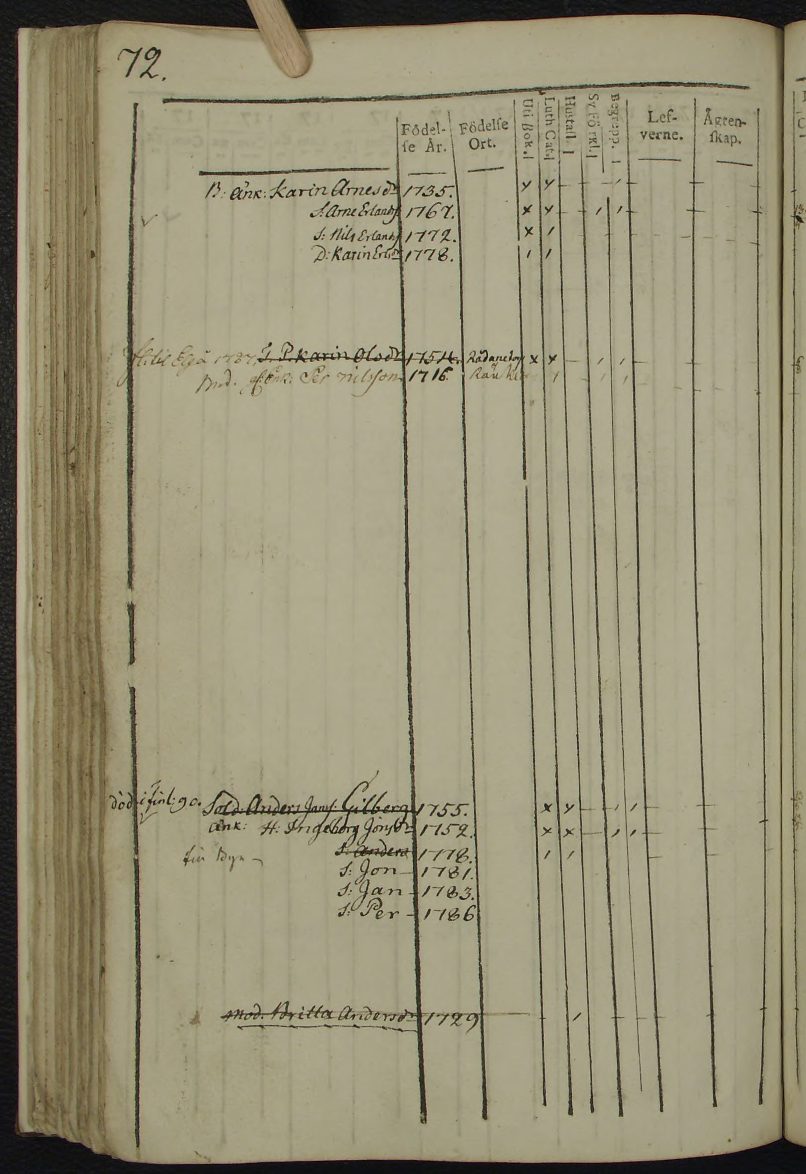 72.
Födel-se År. Födelse Ort. Uti Bok. Luth Cat. Hustafl. Sv. Förkl. Begrepp. Lef-verne. Ägten-skap.
B: Änk: Karin Arnesdr 1735.
S: Arne Erlands 1767.
S: Nils Erlands 1772.
D: Karin Erlsdr 1778.
1787. P. Karin Olsdr 1754.
Änk: Per Nilsson 1716.
död i finl: 90. Sold: Anders Jans. Gilberg 1755.
Änk: H: Ingeborg Jönsdr 1752.
S: Anders 1778.
S: Jon 1781.
S: Jan 1783.
S: Per 1786
Mod. Britta Andersdr 1729